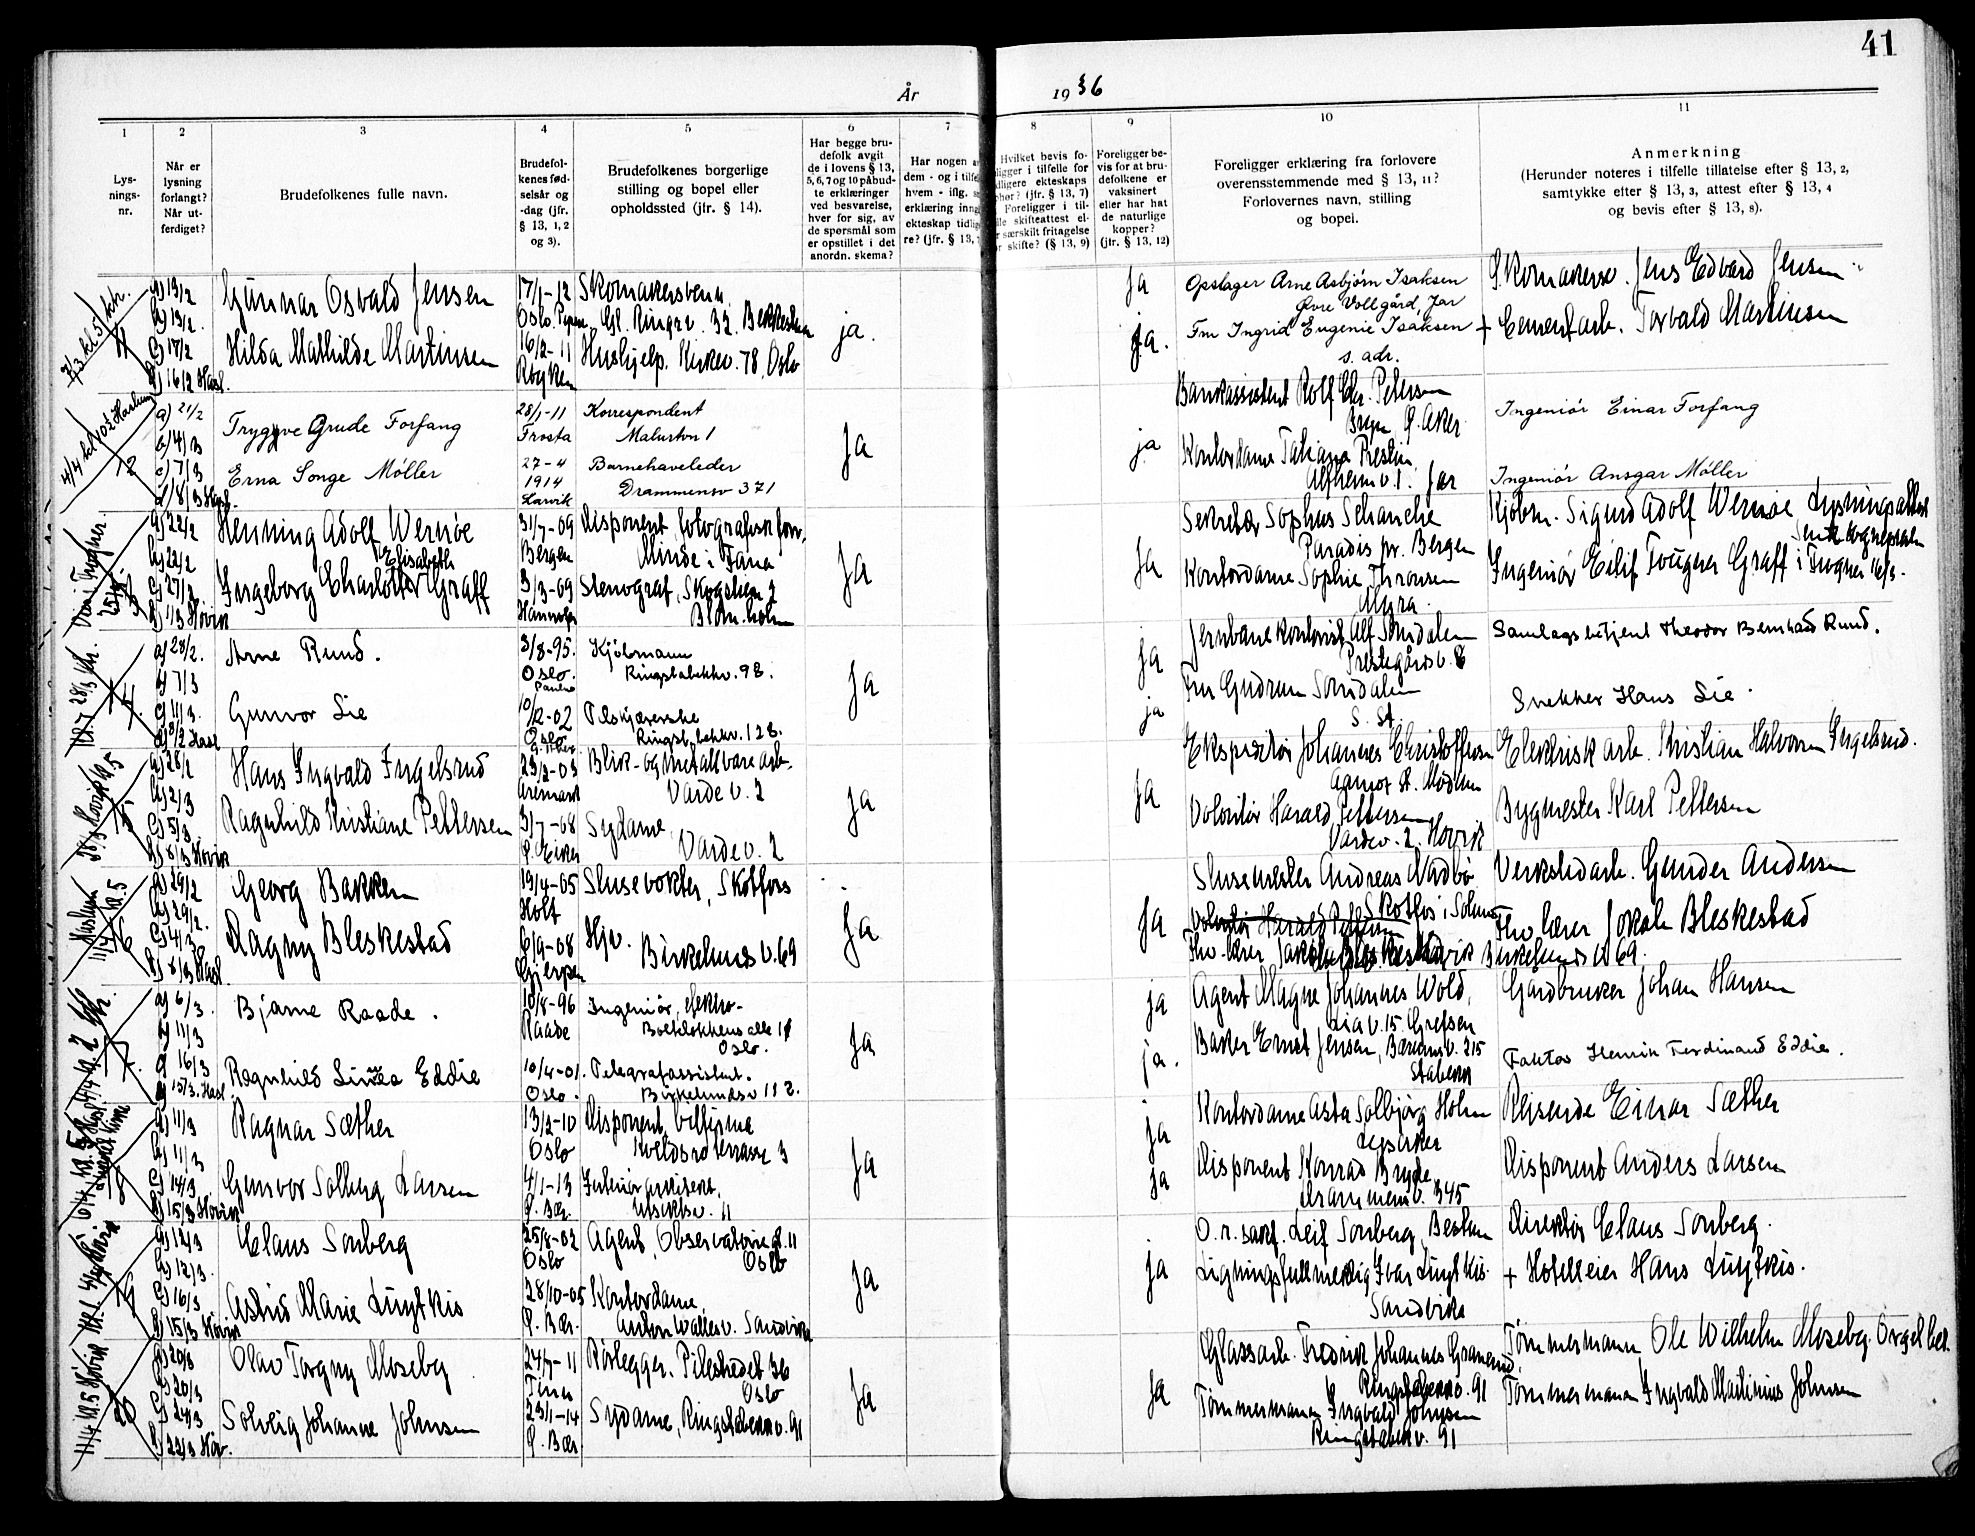 41
År 1936
1 2 3 4 5 6 7 8 9 10 11
Lys-
nings-
nr.
Når er
lysning
forlangt?
Når ut-
ferdiget?
Brudefolkenes fulle navn.
Brudefol-
kenes fød-
selsår og
-dag (jfr.
§ 13, 1, 2
og 3).
Brudefolkenes borgerlige
stilling og bopel eller
opholdssted (jfr. § 14).
Har begge bru-
defolk avgit
de i lovens § 13,
5, 6, 7 og 10 påbud-
te erklæringer
ved besvarelse,
hver for sig, av
de spørsmål som
er opstillet i det
anordn. skema?
Har nogen a
dem - og i tilfel
hvem - iflg. s
erklæring inng
ekteskap tidlig
re? (jfr. § 13,
Hvilket bevis fo-
ligger i tilfelle for
dligere ekteskaps
phør? (jfr. § 13, 7)
Foreligger i til-
lle skifteattest el-
r særskilt fritagelse
or skifte? (§ 13, 9)
Foreligger be-
vis for at bru-
defolkene er
vaksinert
eller har hat
de naturlige
kopper?
(jfr. § 13, 12)
Foreligger erklæring fra forlovere
overensstemmende med § 13, 11?
Forlovernes navn, stilling
og bopel.
Anmerkning
(Herunder noteres i tilfelle tillatelse efter § 13, 2,
samtykke efter § 13, 3, attest efter § 13, 4
og bevis efter § 13, 8).
a) 13/2
b) 13/2.
c) 17/2
d) 16/2 Hasl.
Gunnar Osvald Jensen
Hilda Mathilde Martinsen
17/1-12
Oslo
16/2-11
Røyken
Skomakersvenn
Gl. Ringev. 32. Bekkestua
Hushjelp. Kirkev. 78, Oslo
ja.
ja
ja.
Opslager Arne Asbjørn Isaksen
Øvre Vollgård, Jar
Fru Ingrid Eugenie Isaksen
s. adr.
Skomakersv. Jens Edvard Jensen
+ Cementarb. Torvald Martinsen
a) 21/2
b) 4/3
c) 7/3
d) 8/3 Hasl.
Tryggve Grude Forfang
Erna Songe Møller
28/1-11
Frosta
27-4
1914
Larvik
Korrespondent
Barnehaveleder
Drammensv 371
Ja
ja
Bankassistent Rolf Chr. Petersen
Ø. Aker
Kontordame Tatiana Prestin
Alfheimv. 1. Jar
Ingeniør Einar Forfang
Ingeniør Ansgar Møller
a) 22/2
b) 22/2
c) 27/2
d) 1/3 Høvik
Henning Adolf Wernøe
Elisabeth
Ingeborg Charlotte Graff
31/7-09
Bergen
3/3-09
Disponent, fotografisk forr.
Minde i Fana
Stenograf, Skogstien 2
Blom.holm
Ja
Ja
Sekretær Sophus Schanche
Paradis pr. Bergen
Kontordame Sophie Thronsen
Myra.
Kjøbm. Sigurd Adolf Wernøe Lysningsattest
Ingeniør Eilif Tougner Graff i Frogner 16/3.
a) 28/2.
b) 7/3
c) 11/3.
d) 8/2 Hasl
Arne Ruud.
Gunvor Lie
3/8-95.
Oslo.
10/12-02
Oslo
Kjøbmann
Ringstabekkv. 98.
Ringst.bekkv. 128.
Ja
ja
ja
Jernbanekontorist Alf Somdalen
Prestegårdsv. 8
Fru Gudrun Somdalen
S. St.
Samlagsbetjent Theodor Bernhard Ruud.
Snekker Hans Lie.
a) 28/2
b) 2/3
c) 5/3
d) 8/3 Høvik
Hans Ingvald Ingelsrud
Ragnhild Kristiane Pettersen
23/2-03
Aremark
3/7-08
Ø. Eiker
Blikk- og metallvarearb.
Vardev. 2
Sydame
Vardev. 2
Ja
Ja
Ekspeditør Johannes Christoffersen
Åmot st. Modum
Volontør Harald Pettersen
Vardev. 2. Høvik
Elektrisk arb. Kristian Halvorsen Ingelsrud.
Bygmester Karl Pettersen
a) 29/2
b) 29/2.
c) 4/3
d) 8/3 Hasl.
Georg Bakken
Ragny Bleskestad
19/4-05
Holt
6/9-08
Gjerpen
Slusevokter, Skotfoss
Hjv. Birkelunds v. 69
Ja
Ja
Slusemester Andreas Nadbø
Skotfos i Solum
Volontør Harald Pettersen
Fhv. lærer Jakob Bleskestad Birkelunds v. 69.
Verkstedarb. Gunder Andersen
Fhv lærer Jakob Bleskestad
a) 6/3.
b) 11/3
c) 16/3
d) 15/3. Hasl
Bjarne Raade.
Ragnhild Linnea Eddie
10/8-96
Raade
10/4-01.
Oslo.
Ingeniør, elektro-
Oslo.
Telegrafassistent.
Birkelundsv 112.
Ja
ja
ja.
Agent Magne Johannes Wold,
Liav. 15. Grefsen
Baker Ernst Jensen, Bærumsv. 215
Stabekk
Gårdbruker Johan Hansen
Faktor Henrik Ferdinand Eddie.
a) 11/3
b) 11/3
c) 14/3
d) 15/3 Høvik
Ragnar Sæther
Gunvor Solberg Larsen
13/2-10
Oslo
4/1-13
Ø. Bær.
Disponent, bilfirma
Kveldsroterrasse 3
Interiørarkitekt,
Utsiktsv. 11
Ja
ja
ja
Kontordame Asta Solbjørg Holm
Lysaker
Disponent Konrad Bryde
Drammensv. 345
Reisende Einar Sæther
Disponent Anders Larsen
a) 12/3
b) 12/3.
c) 16/3
d) 15/3 Høvik
Claus Sonberg
Astrid Marie Luytkis
25/8-02
Oslo
28/10-05
Ø. Bær.
Agent, Observatorie gt. 11
Oslo
Kontordame,
Anton Wallesv. Sandvika
Ja
ja
O.r. sakf. Leif Sonberg, Bestum
Ligningsfullmektig Ivar Luytkis.
Sandvika
Direktør Claus Sonberg.
+ Hotelleier Hans Luytkis.
b) 20/3
c) 24/3
d) 22/3 Høv.
Olav Torgny Moseby
Solveig Johanne Johnsen
24/7-11
23/1-14
Ø. Bær
Rørlegger. Pilestredet 36
Oslo
Sydame, Ringstabekkv. 91
Ja
Ja
Glassarb. Fredrik Johannes Granerud
Ringstabekkv. 91
Tømmermann Ingvald Johnsen
Ringstabekkv. 91
Tømmermann Ole Wilhelm Moseby.
Tømmermann Ingvald Martinius Johnsen